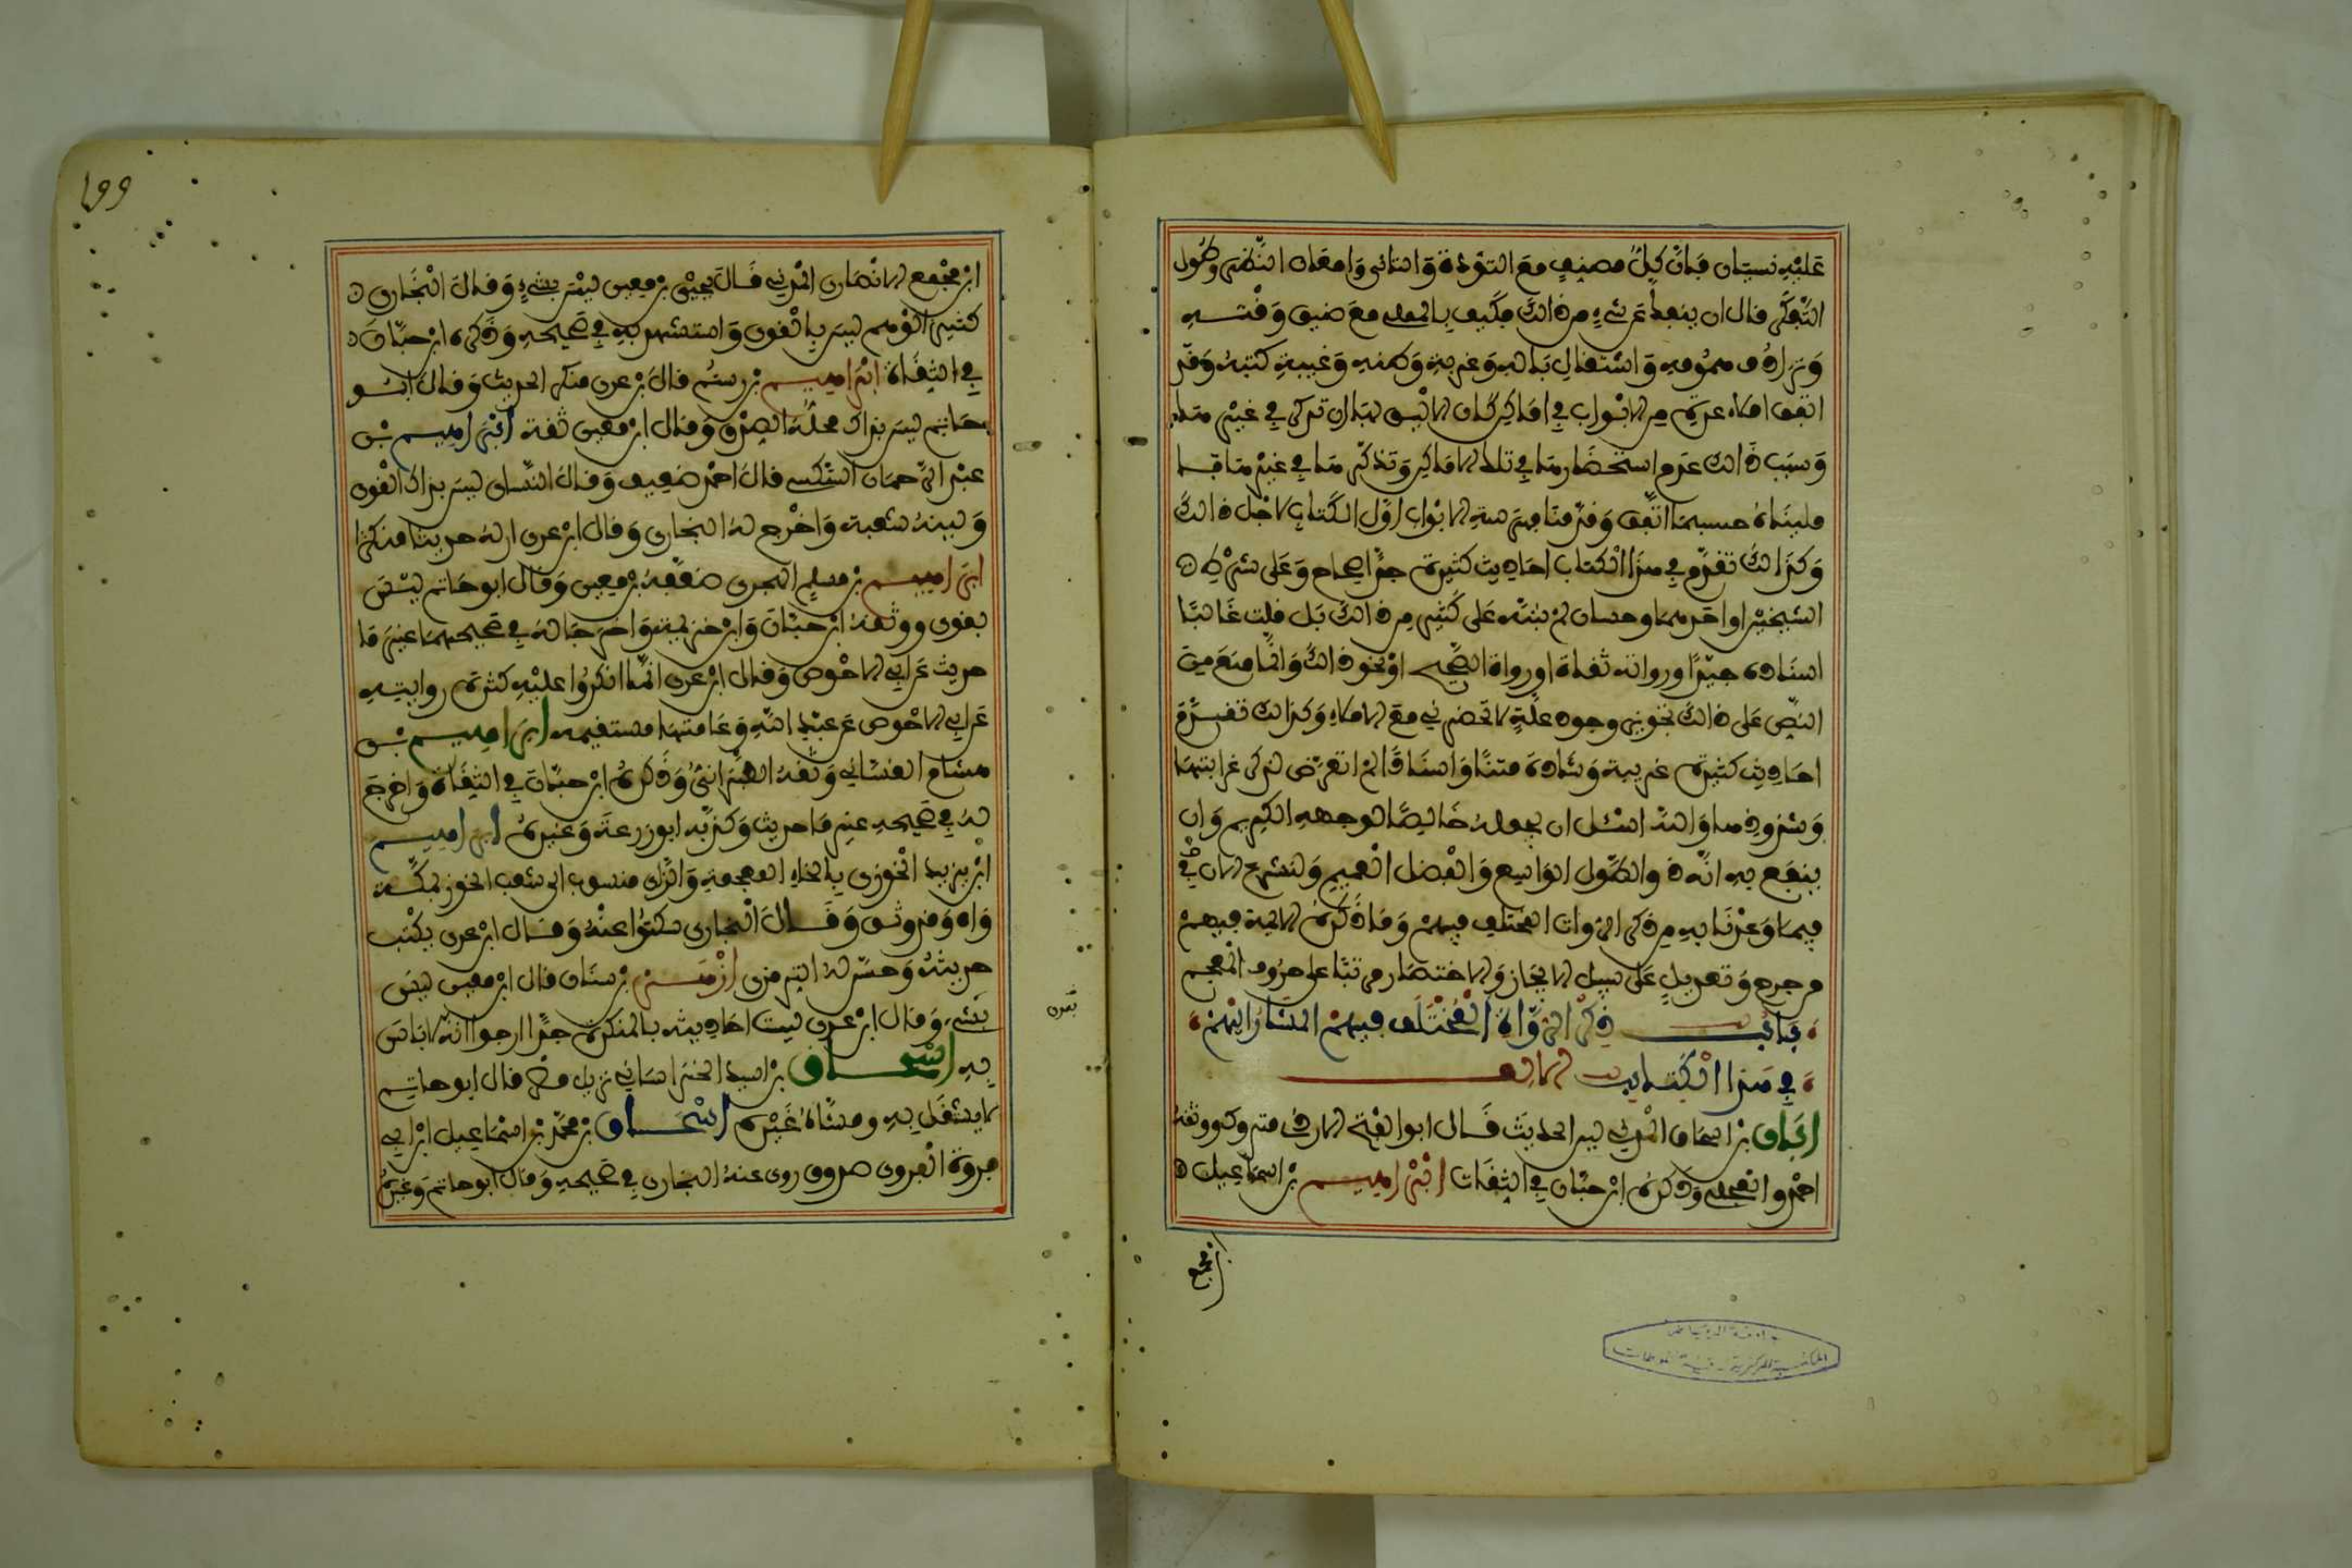 عليه نسيان فإن كل مصنف مع التؤدة والتأني وإمعان النظر وطول
التفكر قل أن ينفك عن شيء من ذلك فكيف بالمملي مع ضيق وقته
وترادف همومه واشتغال باله وغربة وطنه وغيبة كتبه وقد
اتفق إملاء عدة من الأبواب في أماكن كان الأليق بها أن تذكر في غيرها
وسبب ذلك عدم استحضار ما في تلك الأماكن وتذكر ما في غيرها فا
مليناه حسبما اتفق وقدمنا فهرسة الأبواب أول الكتاب لأجل ذلك
وكذلك تقدم في هذا الكتاب أحاديث كثيرة جدا صحاح وعلى شرط
الشيخين أو أحدهما وحسان لم ننبه على كثير من ذلك بل قلت غالبا
إسناده جيد أو رواته ثقات أو رواة الصحيح أو نحو ذلك وإنما منع من
النص على ذلك تجويز وجود علة لا تحضرني مع الإملاء وكذلك تقدم
أحاديث كثيرة غريبة وشاذة متنا وإسنادا لم أتعرض لذكر غرابتها
وشذوذها والله أسئل أن يجعله خالصا لوجهه الكريم وأن
ينفع به إنه ذو الطول الواسع والفضل العميم ولنشرع الآن في
فيما وعدنا به من ذكر الرواة المختلف فيهم وما ذكره الأئمة فيهم
من جرح وتعديل على سبيل الإيجاز والاختصار مرتبا على حروف المعجم
باب ذكر الرواة المختلف فيهم المشار إليهم
في هذا الكتاب الألف
أبان بن إسحاق المدني لين الحديث قال أبو الفتح الأزدي متروك ووثقه
أحمد والعجلي وذكره ابن حبان في الثقات إبراهيم بن إسماعيل
ابن مجمع
جامعة الرياض
المكتبة المركزية - قسم المخطوطات
199
ابن مجمع الأنصاري المدني قال يحيى بن معين ليس بشيء وقال البخاري
كثير الوهم ليس بالقوي واستشهد به في صحيحه وذكره ابن حبان
في الثقاة إبراهيم بن رستم قال بن عدي منكر الحديث وقال أبو
حاتم ليس بذاك محله الصدق وقال ابن معين ثقة إبراهيم بن
عبد الرحمان السكسكي قال أحمد ضعيف وقال النسائي ليس بذاك القوي
ولينه شعبة وأخرج له البخاري وقال ابن عدي لم أر له حديثا منكرا
إبراهيم بن مسلم الهجري ضعفه بن معين وقال أبو حاتم ليس
بقوي ووثقه ابن حبان وابن خزيمة وأخرجا له في صحيحهما غير ما
حديث عن أبي الأحوص وقال ابن عدي إنما أنكروا عليه كثرة روايته
عن أبي الأحوص عن عبد الله وعامتها مستقيمة إبراهيم بن
هشام الغساني وثقه الطبراني وذكره ابن حبان في الثقاة وأخرج
له في صحيحه غير ما حديث وكذبه أبو زرعة وغيره إبراهيم
ابن يزيد الخوزي بالخاء المعجمة والزاي منسوب إلى شعب الخوز بمكة
واه وقد وثق وقال البخاري سكتوا عنه وقال ابن عدي يكتب
حديثه وحسن له الترمذي أزهر بن سنان قال ابن معين ليس
بشيء وقال ابن عدي ليست أحاديثه بالمنكرة جدا أرجو أنه لا بأس
به إسحاق بن أسيد الخراساني نزيل مصر قال أبو حاتم
لا يشتغل به ومشاه غيره إسحاق بن محمد بن إسماعيل ابن أبي
فروة الفروي صدوق روى عنه البخاري في صحيحه وقال أبو حاتم وغيره